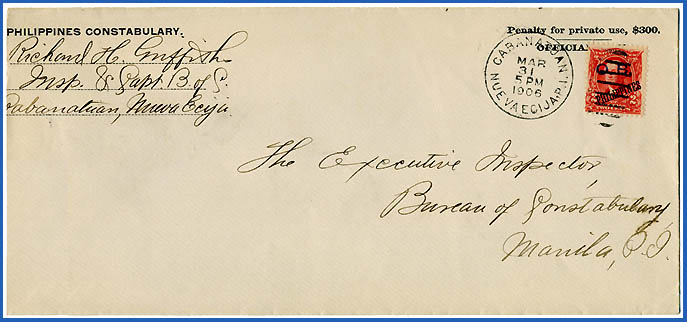 PHILIPPINES CONSTABULARY.
Richard H. Griffith
Insp. & Capt. B of C.
Cabanatuan, Nueva Ecija
Penalty for private use, $300.
OFFICIAL
CABANATUAN
MAR
31
5 PM
1906
NUEVA ECIJA. P.I.
O.B.
PHILIPPINES
The Executive Inspector,
Bureau of Constabulary
Manila, P.I.